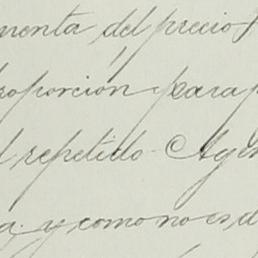 menta del precio
roporción para p
l repetido Ay
a. y como no es d